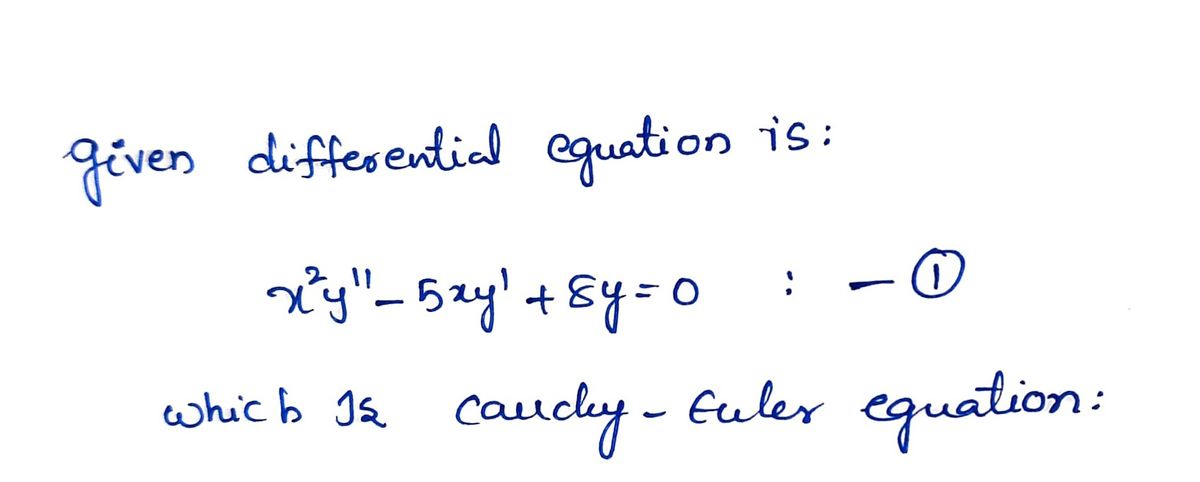 given differential equation is:
x²y'' - 5xy' + 8y = 0 : - ①
which Is Cauchy - Euler equation: